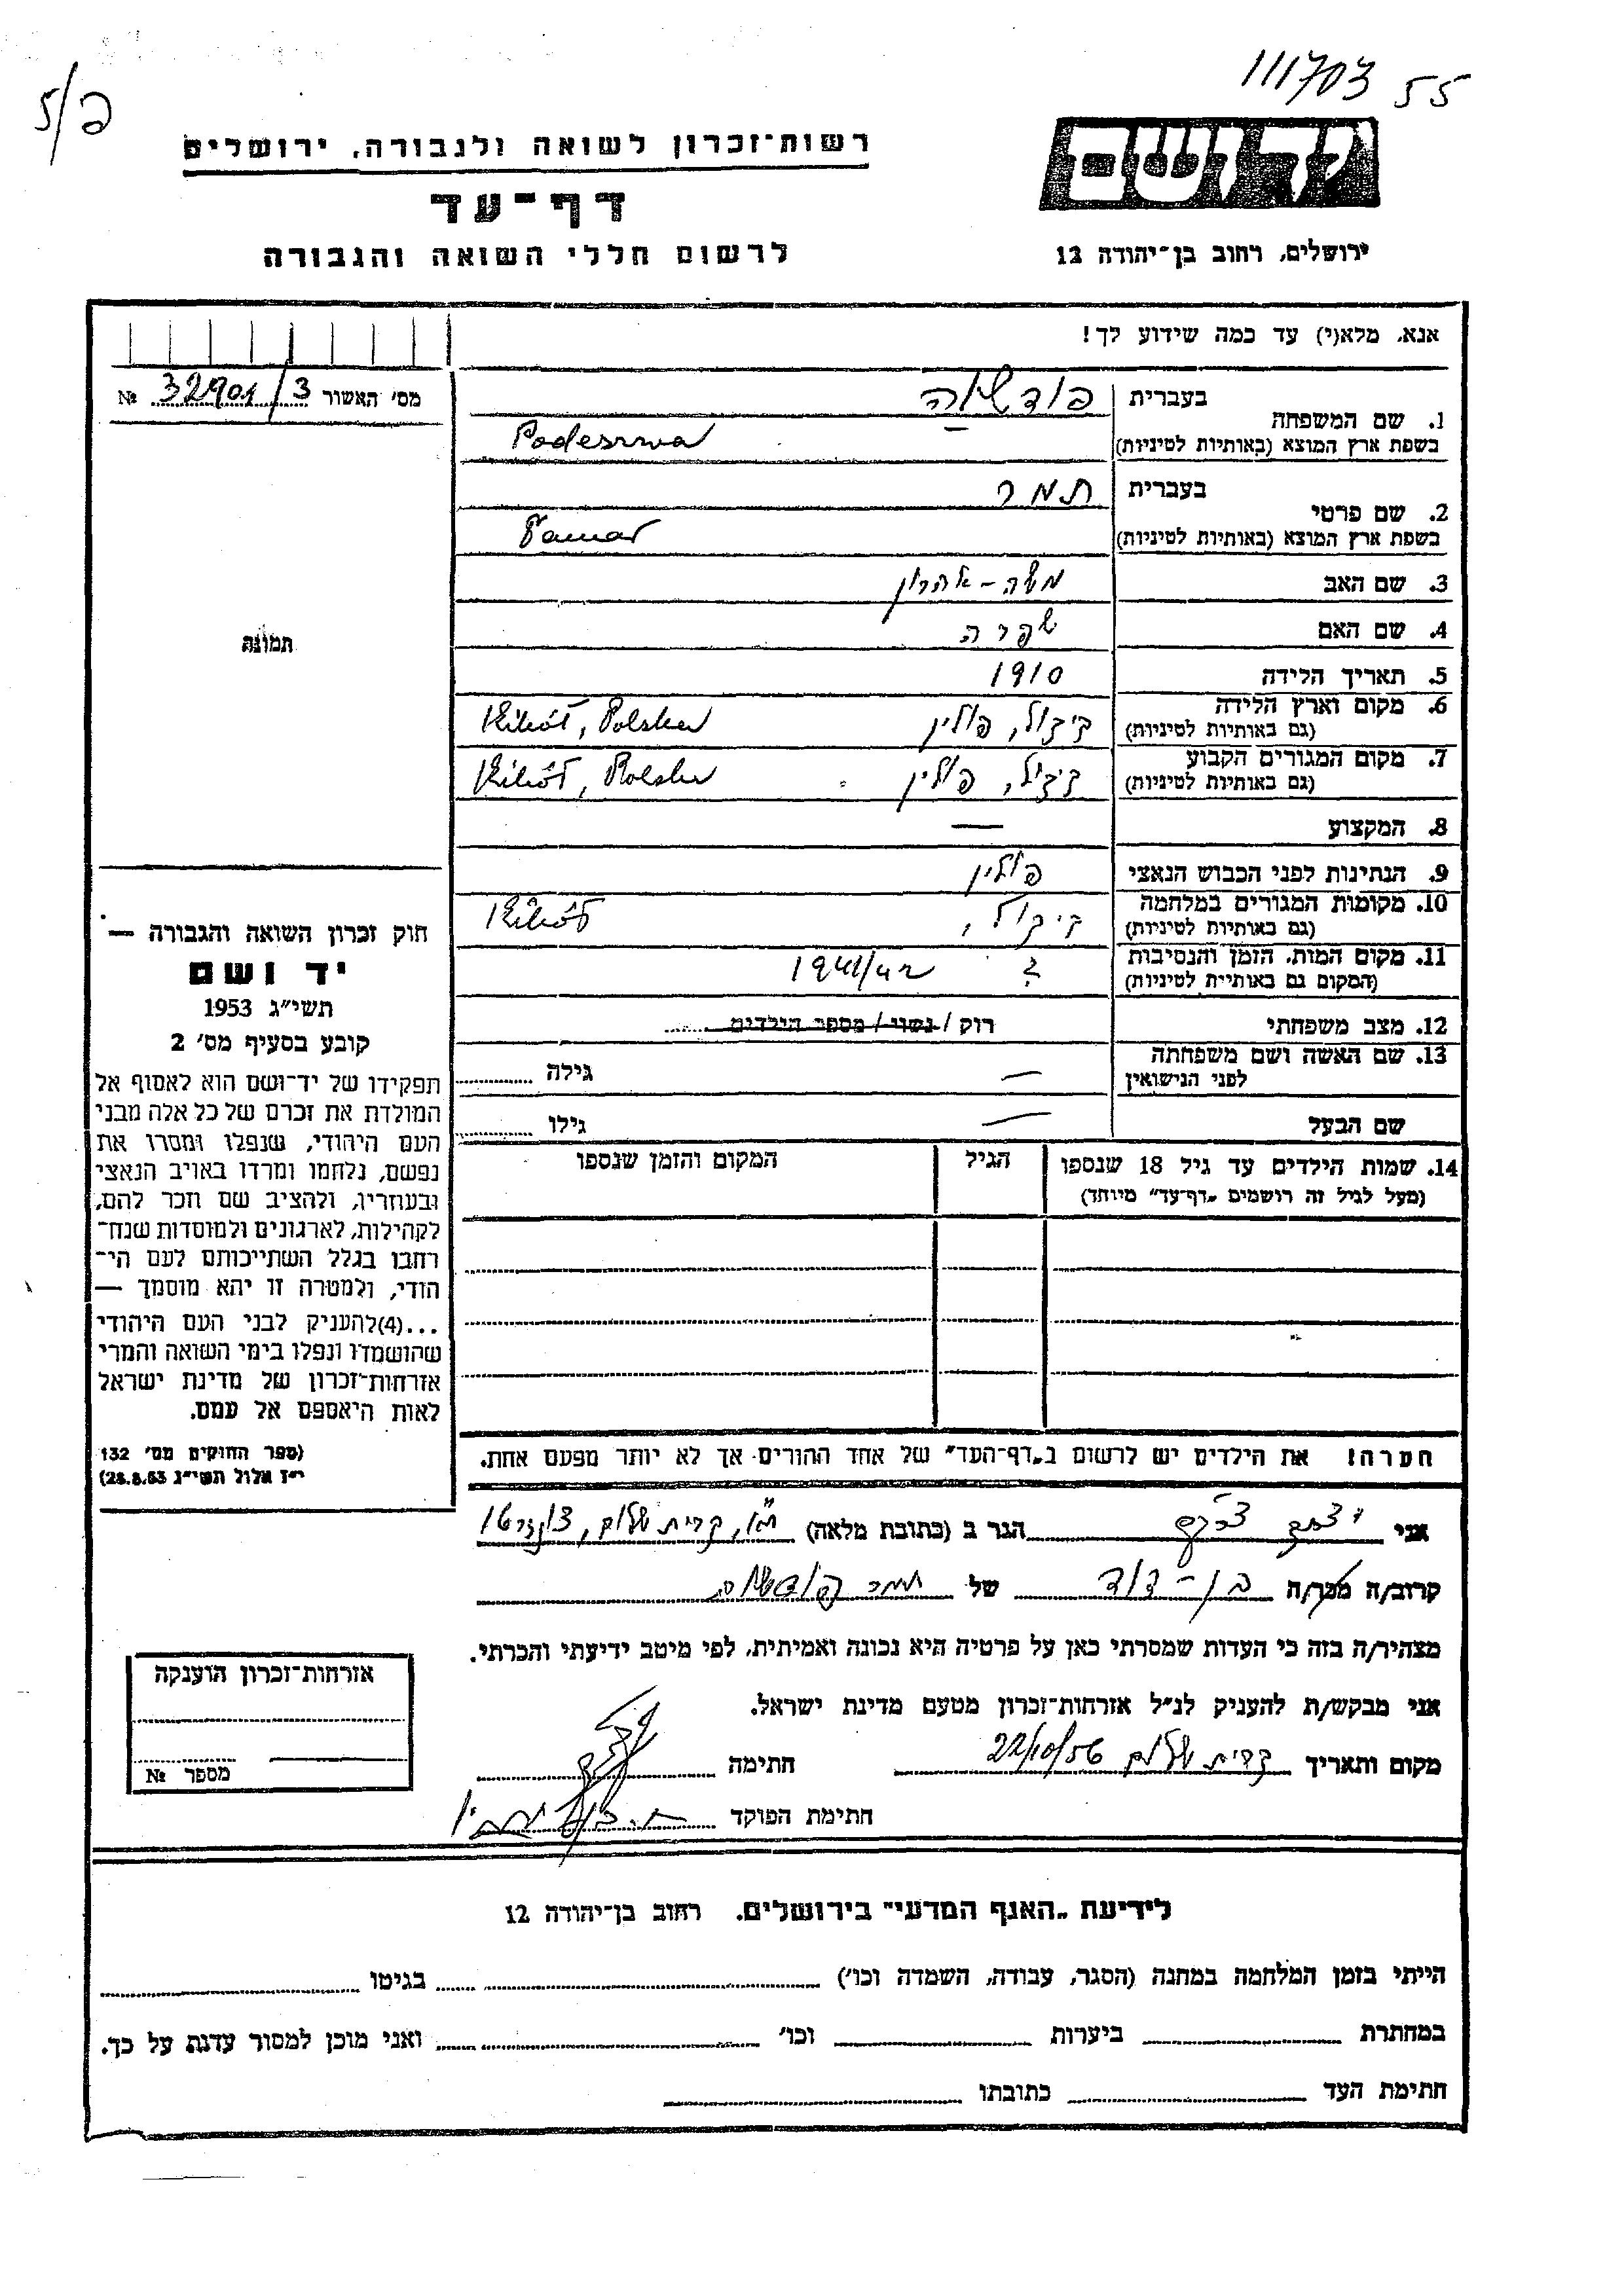 111703 55
פ/5
יד ושם
רשות־זכרון לשואה ולגבורה, ירושלים
דף־עד
לרשום חללי השואה והגבורה
ירושלים, רחוב בן־יהודה 12
אנא, מלא(י) עד כמה שידוע לך!
מס' האשור 32901/3 №
1. שם המשפחה
בעברית
בשפת ארץ המוצא (באותיות לטיניות)
Podeszwa
2. שם פרטי
בעברית תמר
בשפת ארץ המוצא (באותיות לטיניות) Tamar
3. שם האב משה - אהרון
4. שם האם שפרה
5. תאריך הלידה 1910
6. מקום וארץ הלידה
(גם באותיות לטיניות) קיקול, פולין Kikół, Polska
7. מקום המגורים הקבוע
(גם באותיות לטיניות) קיקול, פולין Kikół, Polska
8. המקצוע —
9. הנתינות לפני הכבוש הנאצי פולין
10. מקומות המגורים במלחמה
(גם באותיות לטיניות) קיקול, Kikół
11. מקום המות, הזמן והנסיבות
(המקום גם באותיות לטיניות) ? 1941/42
12. מצב משפחתי רוק / נשוי / מספר הילדים
13. שם האשה ושם משפחתה
לפני הנישואין — גילה
שם הבעל — גילו
14. שמות הילדים עד גיל 18 שנספו
(מעל לגיל זה רושמים „דף־עד" מיוחד)
הגיל
המקום והזמן שנספו
הערה! את הילדים יש לרשום ב„דף־העד" של אחד ההורים אך לא יותר מפעם אחת.
תמונה
חוק זכרון השואה והגבורה —
יד ושם
תשי"ג 1953
קובע בסעיף מס' 2
תפקידו של יד־ושם הוא לאסוף אל
המולדת את זכרם של כל אלה מבני
העם היהודי, שנפלו ומסרו את
נפשם, נלחמו ומרדו באויב הנאצי
ובעוזריו, ולהציב שם וזכר להם,
לקהילות, לארגונים ולמוסדות שנח־
רחבו בגלל השתייכותם לעם הי־
הודי, ולמטרה זו יהא מוסמך —
...(4)להעניק לבני העם היהודי
שהושמדו ונפלו בימי השואה והמרי
אזרחות־זכרון של מדינת ישראל
לאות היאספם אל עמם.
(ספר החוקים מס' 132
י"ז אלול תשי"ג 28.8.53)
אני הגר ב (כתובת מלאה) ת"א, קרית שלום,
קרוב/ה מכר/ה בן - דוד של תמר
מצהיר/ה בזה כי העדות שמסרתי כאן על פרטיה היא נכונה ואמיתית, לפי מיטב ידיעתי והכרתי.
אני מבקש/ת להעניק לנ"ל אזרחות־זכרון מטעם מדינת ישראל.
מקום ותאריך קרית שלום 22/10/56 חתימה
חתימת הפוקד
אזרחות־זכרון הוענקה
מספר №
לידיעת „האגף המדעי" בירושלים. רחוב בן־יהודה 12
הייתי בזמן המלחמה במחנה (הסגר, עבודה, השמדה וכו') בגיטו
במחתרת ביערות וכו' ואני מוכן למסור עדות על כך.
חתימת העד כתובתו